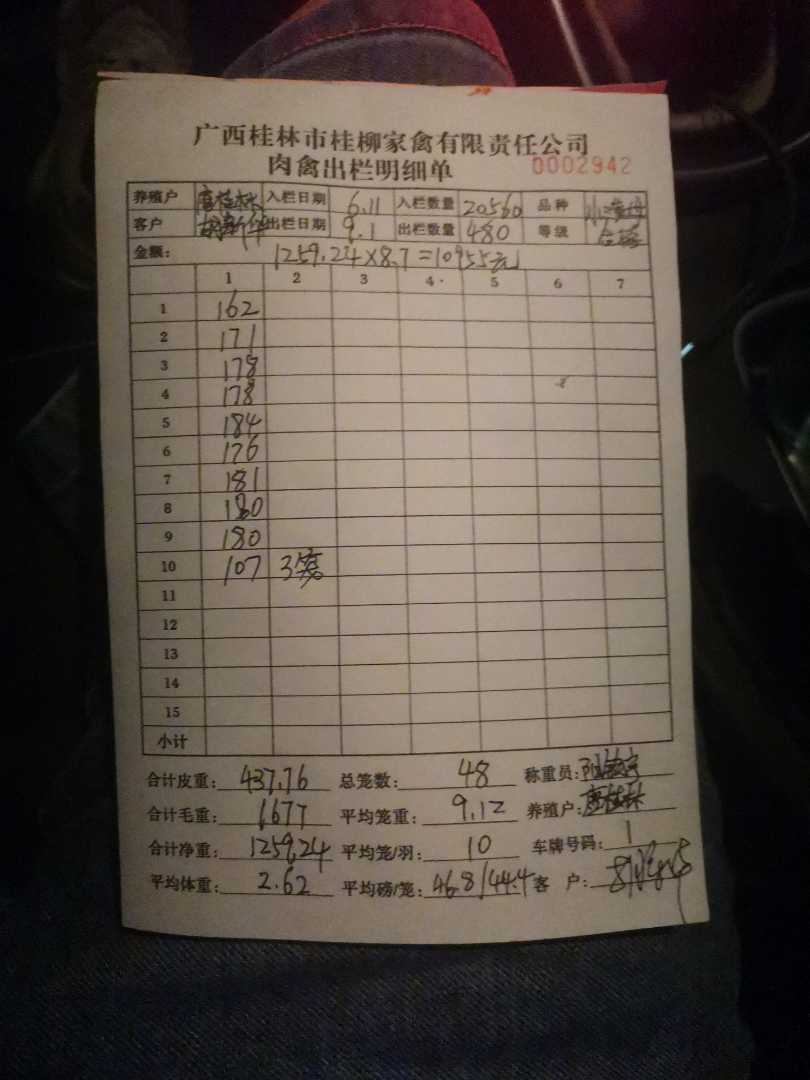 广西桂林市桂柳家禽有限责任公司
肉禽出栏明细单 0002942
养殖户 唐桂林 入栏日期 6.11 入栏数量 20560 品种
客户 出栏日期 9.1 出栏数量 480 等级 合格
金额: 1259.24×8.7=10955元
1 2 3 4 5 6 7
1 162
2 171
3 178
4 178
5 184
6 176
7 181
8 180
9 180
10 107 3笼
11
12
13
14
15
小计
合计皮重: 437.76 总笼数: 48 称重员:
合计毛重: 1677 平均笼重: 9.12 养殖户: 唐桂林
合计净重: 1259.24 平均笼/羽: 10 车牌号码: 1
平均体重: 2.62 平均磅/笼: 46.8/44.4 客 户: